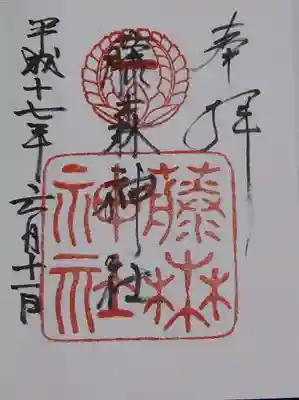 奉拝
藤森神社
藤森神社
平成十七年六月十一日